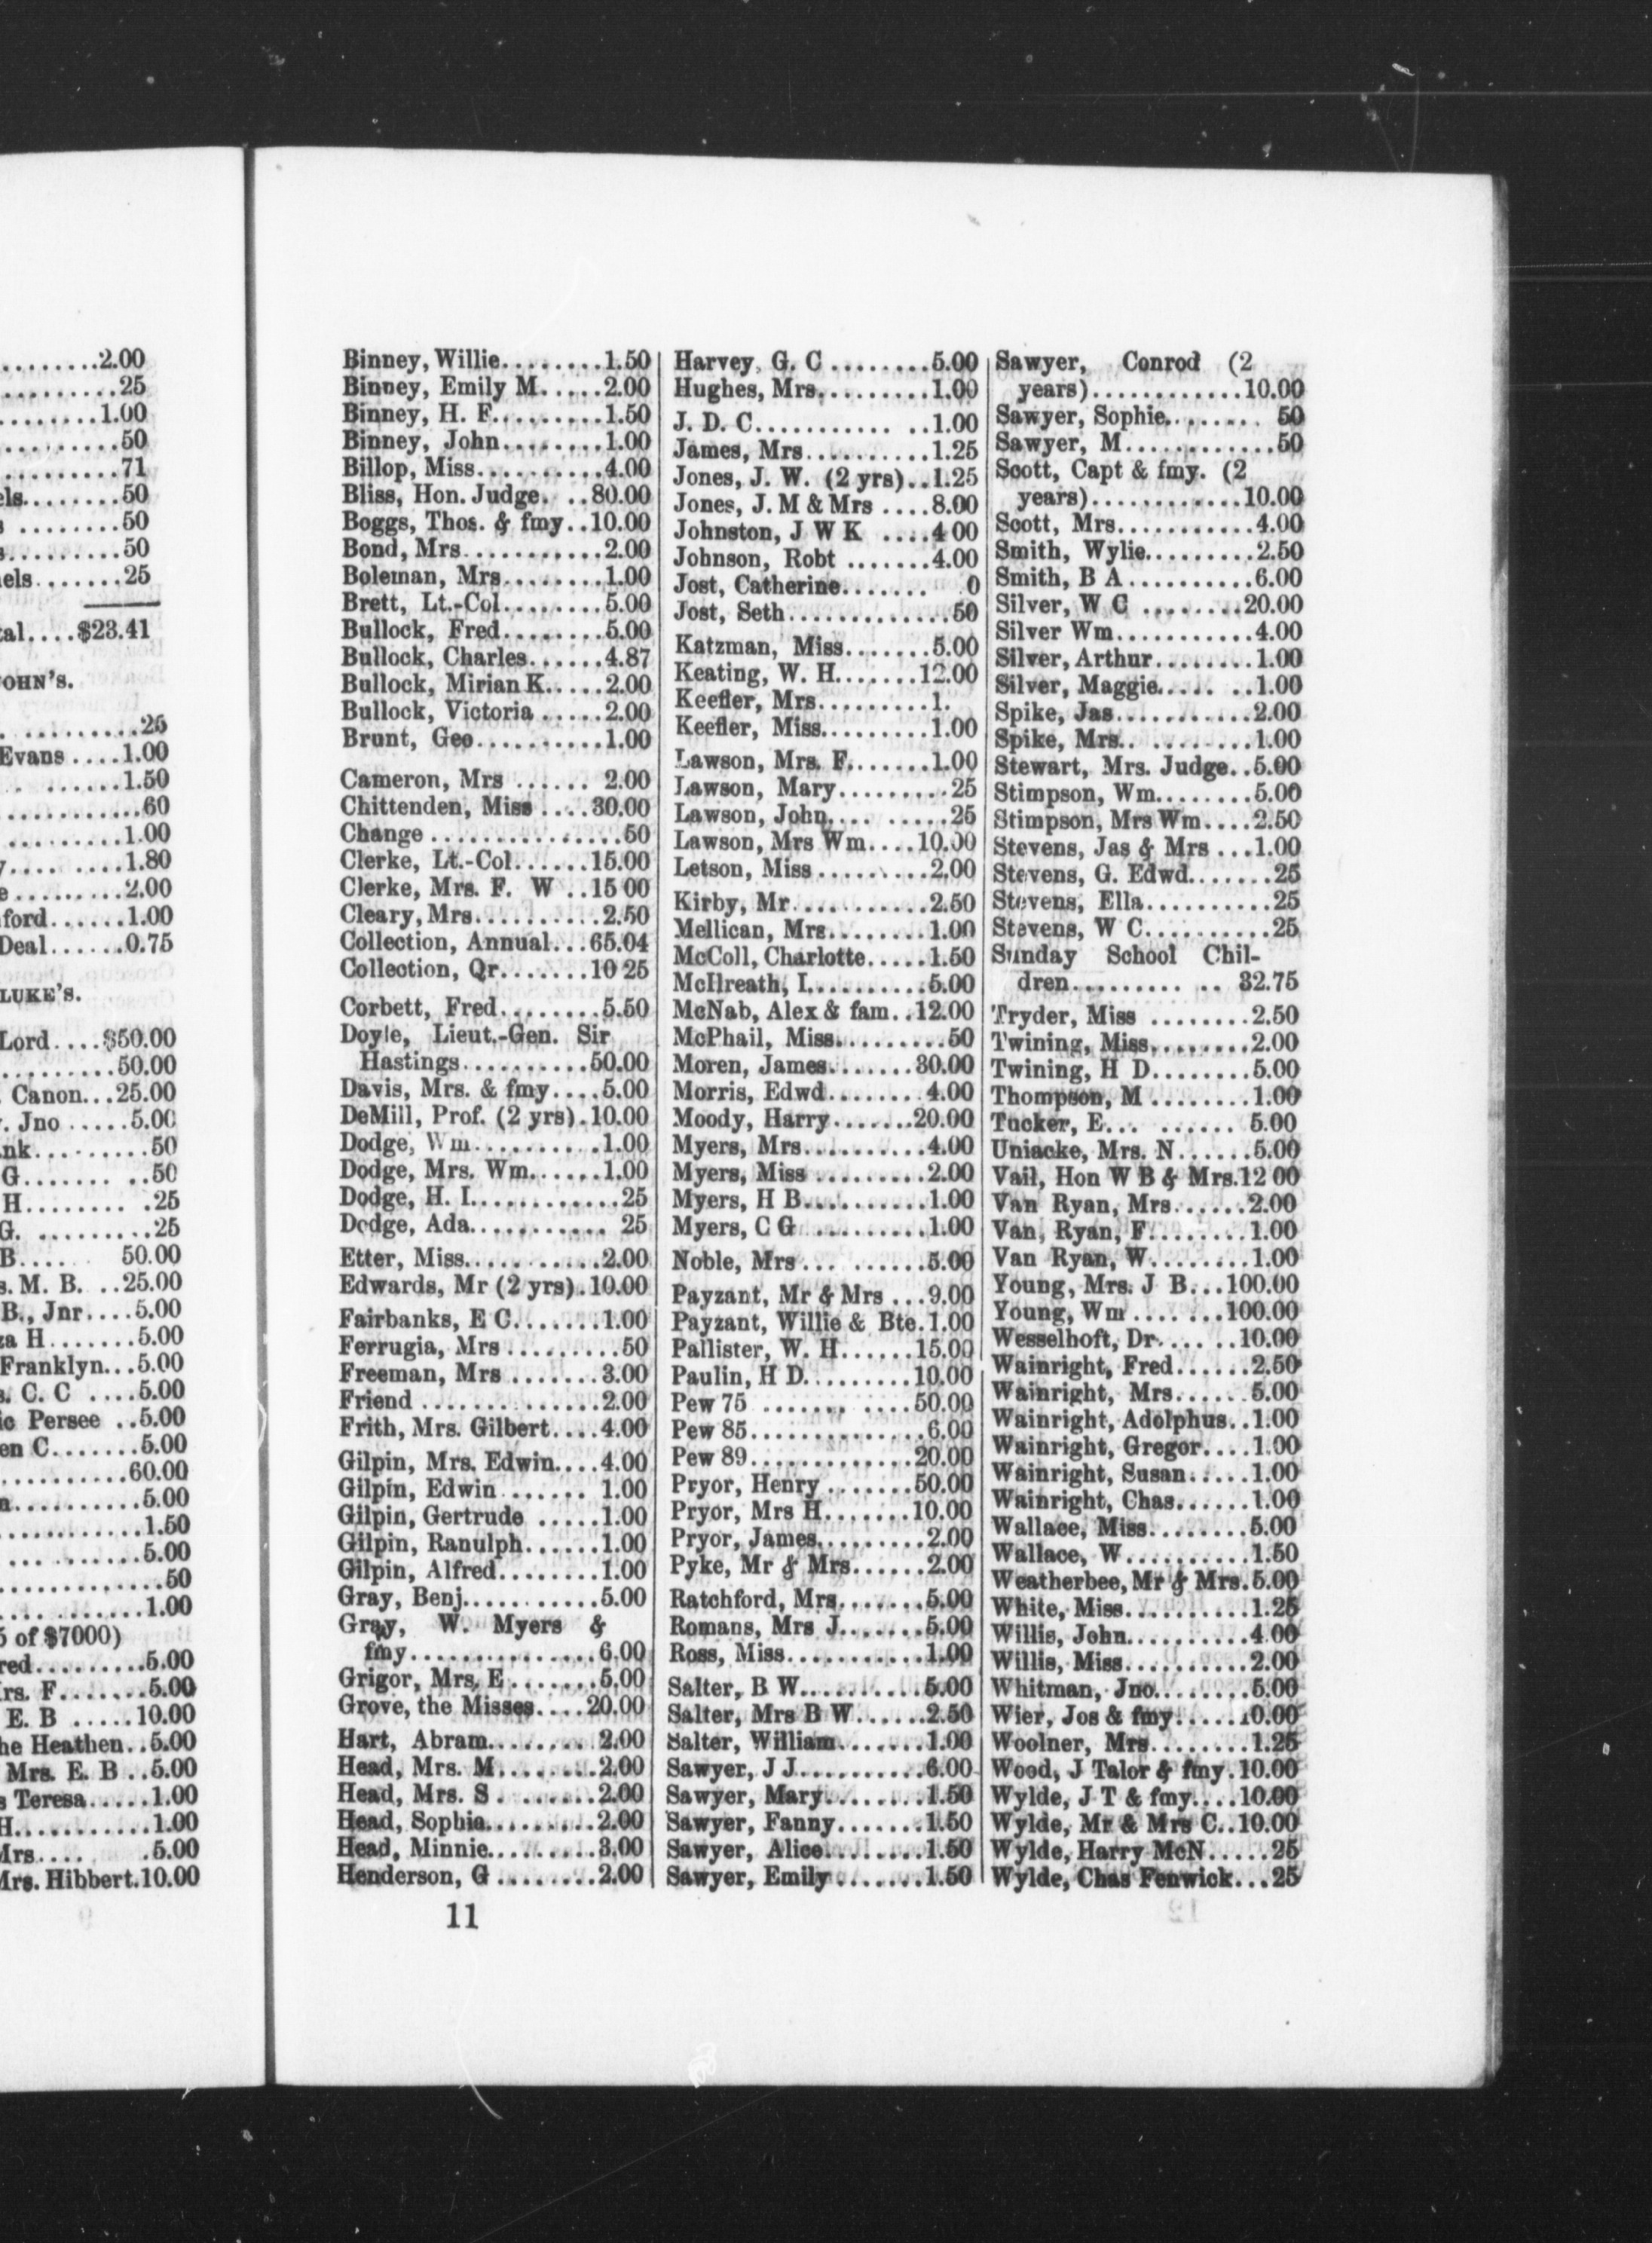 .........2.00
..........25
.........1.00
..........50
..........71
els........50
s ........50
s.........50
els.......25
tal....$23.41
OHN'S.
. .........25
Evans ....1.00
.. .......1.50
...........60
. .........1.00
y.... .....1.80
e.........2.00
ford......1.00
Deal......0.75
LUKE'S.
Lord....$50.00
.........50.00
. Canon...25.00
. Jno .....5.00
nk.........50
G....... ..50
H........ .25
G. .........25
B.... 50.00
s. M. B. ..25.00
B., Jnr....5.00
za H.......5.00
Franklyn...5.00
s. C. C ....5.00
ic Persee ..5.00
en C.......5.00
..........60.00
a..........5.00
...........1.50
... .......5.00
.............50
. .........1.00
5 of $7000)
red.........5.00
rs. F.......5.00
E. B .....10.00
he Heathen..5.00
Mrs. E. B ..5.00
s Teresa.....1.00
H...........1.00
Mrs.... .5.00
Mrs. Hibbert.10.00
Binney, Willie........1.50
Binney, Emily M.....2.00
Binney, H. F.........1.50
Binney, John........1.00
Billop, Miss..........4.00
Bliss, Hon. Judge. ..80.00
Boggs, Thos. & fmy..10.00
Bond, Mrs...........2.00
Boleman, Mrs........1.00
Brett, Lt.-Col........5.00
Bullock, Fred........5.00
Bullock, Charles......4.87
Bullock, Mirian K.....2.00
Bullock, Victoria .....2.00
Brunt, Geo..........1.00
Cameron, Mrs ...... 2.00
Chittenden, Miss ....30.00
Change ...............50
Clerke, Lt.-Col......15.00
Clerke, Mrs. F. W ..15 00
Cleary, Mrs..........2.50
Collection, Annual...65.04
Collection, Qr.......10 25
Corbett, Fred........5.50
Doyle, Lieut.-Gen. Sir
Hastings..........50.00
Davis, Mrs. & fmy....5.00
DeMill, Prof. (2 yrs).10.00
Dodge, Wm..........1.00
Dodge, Mrs. Wm......1.00
Dodge, H. I............25
Dodge, Ada........... 25
Etter, Miss...........2.00
Edwards, Mr (2 yrs).10.00
Fairbanks, E C.......1.00
Ferrugia, Mrs .........50
Freeman, Mrs .......3.00
Friend ..............2.00
Frith, Mrs. Gilbert....4.00
Gilpin, Mrs. Edwin....4.00
Gilpin, Edwin ....... 1.00
Gilpin, Gertrude .....1.00
Gilpin, Ranulph......1.00
Gilpin, Alfred........1.00
Gray, Benj...........5.00
Gray, W. Myers &
fmy...............6.00
Grigor, Mrs. E .......5.00
Grove, the Misses....20.00
Hart, Abram.........2.00
Head, Mrs. M........2.00
Head, Mrs. S . .......2.00
Head, Sophia.........2.00
Head, Minnie.........3.00
Henderson, G ........2.00
Harvey, G. C ........5.00
Hughes, Mrs.........1.00
J. D. C........... ..1.00
James, Mrs..........1.25
Jones, J. W. (2 yrs)..1.25
Jones, J. M & Mrs ....8.00
Johnston, J W K ....4 00
Johnson, Robt .......4.00
Jost, Catherine....... 0
Jost, Seth.............50
Katzman, Miss.......5.00
Keating, W. H.......12.00
Keefler, Mrs.........1.
Keefler, Miss.........1.00
Lawson, Mrs. F.......1.00
Lawson, Mary.........25
Lawson, John.... .....25
Lawson, Mrs Wm....10.00
Letson, Miss .........2.00
Kirby, Mr...........2.50
Mellican, Mrs........1.00
McColl, Charlotte.....1.50
McIlreath, I..........5.00
McNab, Alex & fam..12.00
McPhail, Miss..........50
Moren, James.......30.00
Morris, Edwd........4.00
Moody, Harry.......20.00
Myers, Mrs..........4.00
Myers, Miss .........2.00
Myers, H B..........1.00
Myers, C G ..........1.00
Noble, Mrs ... ......5.00
Payzant, Mr & Mrs ...9.00
Payzant, Willie & Bte.1.00
Pallister, W. H......15.00
Paulin, H D.........10.00
Pew 75 ....... ....50.00
Pew 85..............6.00
Pew 89.............20.00
Pryor, Henry .......50.00
Pryor, Mrs H.......10.00
Pryor, James.........2.00
Pyke, Mr & Mrs......2.00
Ratchford, Mrs.......5.00
Romans, Mrs J.......5.00
Ross, Miss...........1.00
Salter, B W..........5.00
Salter, Mrs B W......2.50
Salter, William.......1.00
Sawyer, J J..........6.00
Sawyer, Mary........1.50
Sawyer, Fanny.......1.50
Sawyer, Alice........1.50
Sawyer, Emily .......1.50
Sawyer, Conrod (2
years)............10.00
Sawyer, Sophie........ 50
Sawyer, M............50
Scott, Capt & fmy. (2
years)............10.00
Scott, Mrs...........4.00
Smith, Wylie.........2.50
Smith, B A..........6.00
Silver, W C ........20.00
Silver Wm...........4.00
Silver, Arthur........1.00
Silver, Maggie..... ..1.00
Spike, Jas...........2.00
Spike, Mrs.. ........1.00
Stewart, Mrs. Judge..5.00
Stimpson, Wm........5.00
Stimpson, Mrs Wm....2.50
Stevens, Jas & Mrs ...1.00
Stevens, G. Edwd.......25
Stevens, Ella..........25
Stevens, W C..........25
Sunday School Chil-
dren......... .. 32.75
Tryder, Miss ........2.50
Twining, Miss........2.00
Twining, H D........5.00
Thompson, M ........1.00
Tucker, E... ...... 5.00
Uniacke, Mrs. N......5.00
Vail, Hon W B & Mrs.12 00
Van Ryan, Mrs......2.00
Van, Ryan, F........1.00
Van Ryan, W........1.00
Young, Mrs. J B...100.00
Young, Wm.... ...100.00
Wesselhoft, Dr..... ..10.00
Wainright, Fred......2.50
Wainright, Mrs......5.00
Wainright, Adolphus..1.00
Wainright, Gregor....1.00
Wainright, Susan.....1.00
Wainright, Chas......1.00
Wallace, Miss........5.00
Wallace, W..........1.50
Weatherbee, Mr & Mrs.5.00
White, Miss..........1.25
Willis, John..........4.00
Willis, Miss..........2.00
Whitman, Jno........5.00
Wier, Jos & fmy.....10.00
Woolner, Mrs........1.25
Wood, J Talor & fmy.10.00
Wylde, J T & fmy....10.00
Wylde, Mr & Mrs C..10.00
Wylde, Harry McN.....25
Wylde, Chas Fenwick...25
11